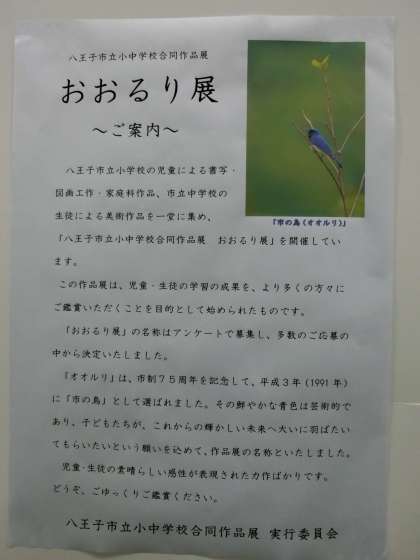 八王子市立小中学校合同作品展
おおるり展
～ご案内～
『市の鳥(オオルリ)』
八王子市立小学校の児童による書写・
図画工作・家庭科作品、市立中学校の
生徒による美術作品を一堂に集め、
「八王子市立小中学校合同作品展　おおるり展」を開催してい
ます。
この作品展は、児童・生徒の学習の成果を、より多くの方々に
ご鑑賞いただくことを目的として始められたものです。
「おおるり展」の名称はアンケートで募集し、多数のご応募の
中から決定いたしました。
『オオルリ』は、市制７５周年を記念して、平成３年(1991 年)
に「市の鳥」として選ばれました。その鮮やかな青色は芸術的で
あり、子どもたちが、これからの輝かしい未来へ大いに羽ばたい
てもらいたいという願いを込めて、作品展の名称といたしました。
児童・生徒の素晴らしい感性が表現された力作ばかりです。
どうぞ、ごゆっくりご鑑賞ください。
八王子市立小中学校合同作品展 実行委員会